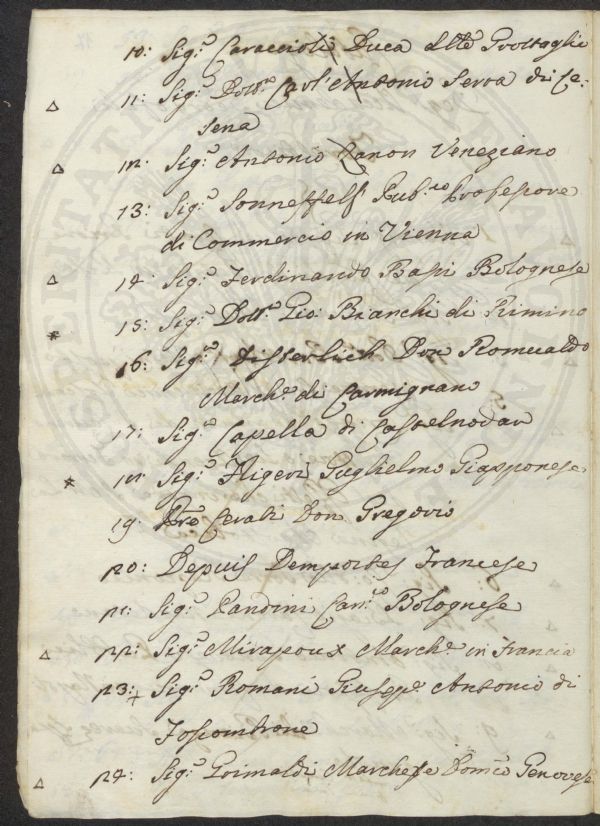 10: Sig.r Caraccioli Duca delle Grottaglie
11: Sig.r Dott.r Carl'Antonio Serra di Ce-
sena
12: Sig.r Antonio Zanon Veneziano
13: Sig.r Sonneffels Pub.co Professore
di Commercio in Vienna
14 Sig.r Ferdinando Bassi Bolognese
15: Sig.r Dott.r Gio: Bianchi di Rimino
16: Sig.r Don Romualdo
March.e di Carmignano
17: Sig.r Capella di Castelnodar
18: Sig.r Guglielmo Giapponese
19 Cerati Don Gregorio
20: Depuis Demportes Francese
21: Sig.r Pandini Can.co Bolognese
22: Sig.r Mirapoux March.e in Francia
23: Sig.r Romani Giusepp.e Antonio di
Fosombrone
24: Sig.r Grimaldi Marchese Dom.co Genovese